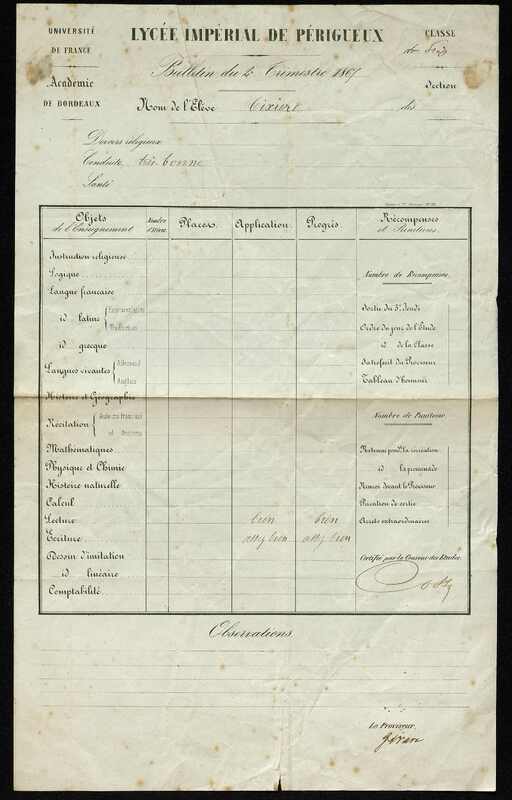 UNIVERSITÉ
DE FRANCE
Académie
DE BORDEAUX
LYCÉE IMPÉRIAL DE PÉRIGUEUX
Bulletin du 2e Trimestre 1867
Nom de l'Élève
CLASSE
de
Section
des
Devoirs religieux
Conduite très bonne
Santé
Objets de l'Enseignement
Nombre d'Élèves
Places
Application
Progrès
Récompenses et Punitions
Instruction religieuse
Logique
Langue française
id latine
id grecque
Langues vivantes { Allemand
Anglais
Histoire et Géographie
Récitation { Auteurs français
id
Mathématiques
Physique et Chimie
Histoire naturelle
Calcul
Lecture bien bien
Écriture assez bien assez bien
Dessin d'imitation
id linéaire
Comptabilité
Nombre de Récompenses
Sortie du 3e Jeudi
Ordre du jour de l'Étude
id de la Classe
Satisfecit du Proviseur
Tableau d'honneur
Nombre de Punitions
Retenue pend.t la récréation
id la promenade
Renvoi devant le Proviseur
Privation de sortie
Arrêts extraordinaires
Certifié par le Censeur des Études
Observations
Le Proviseur